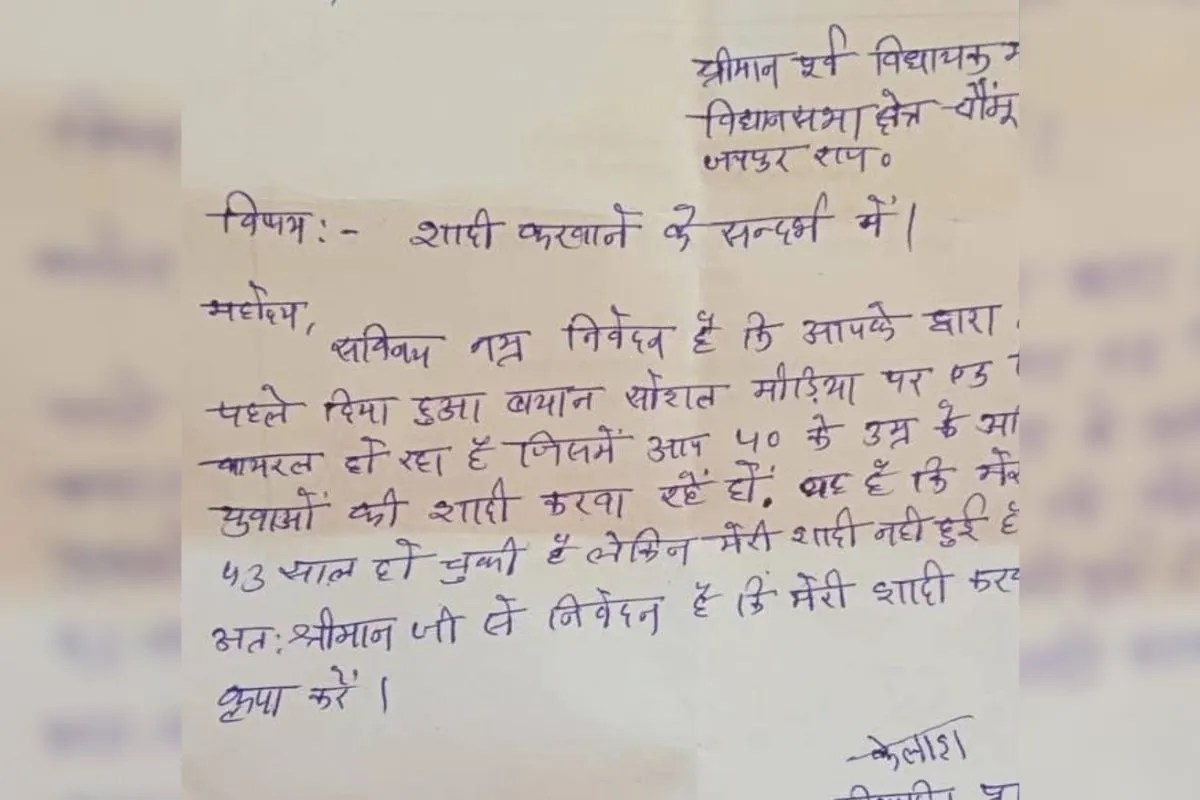 श्रीमान पूर्व विधायक
विधानसभा क्षेत्र चौमूं
जयपुर राज०
विषय :- शादी करवाने के सन्दर्भ में।
महोदय,
सविनय नम्र निवेदन है कि आपके द्वारा
पहले दिया हुआ बयान सोशल मीडिया पर
वायरल हो रहा है जिसमें आप 40 के उम्र के
युवाओं की शादी करवा रहें हों. यह है कि
43 साल हो चुकी है लेकिन मेरी शादी नही हुई है
अतः श्रीमान जी से निवेदन है कि मेरी शादी
कृपा करें।
कैलाश